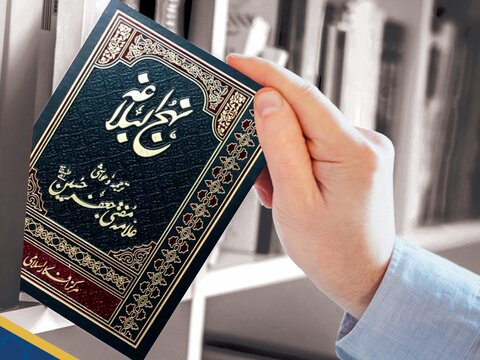 نہج البلاغہ
ترجمہ و حواشی
علامہ مفتی جعفر حسین
مرکز افکار اسلامی